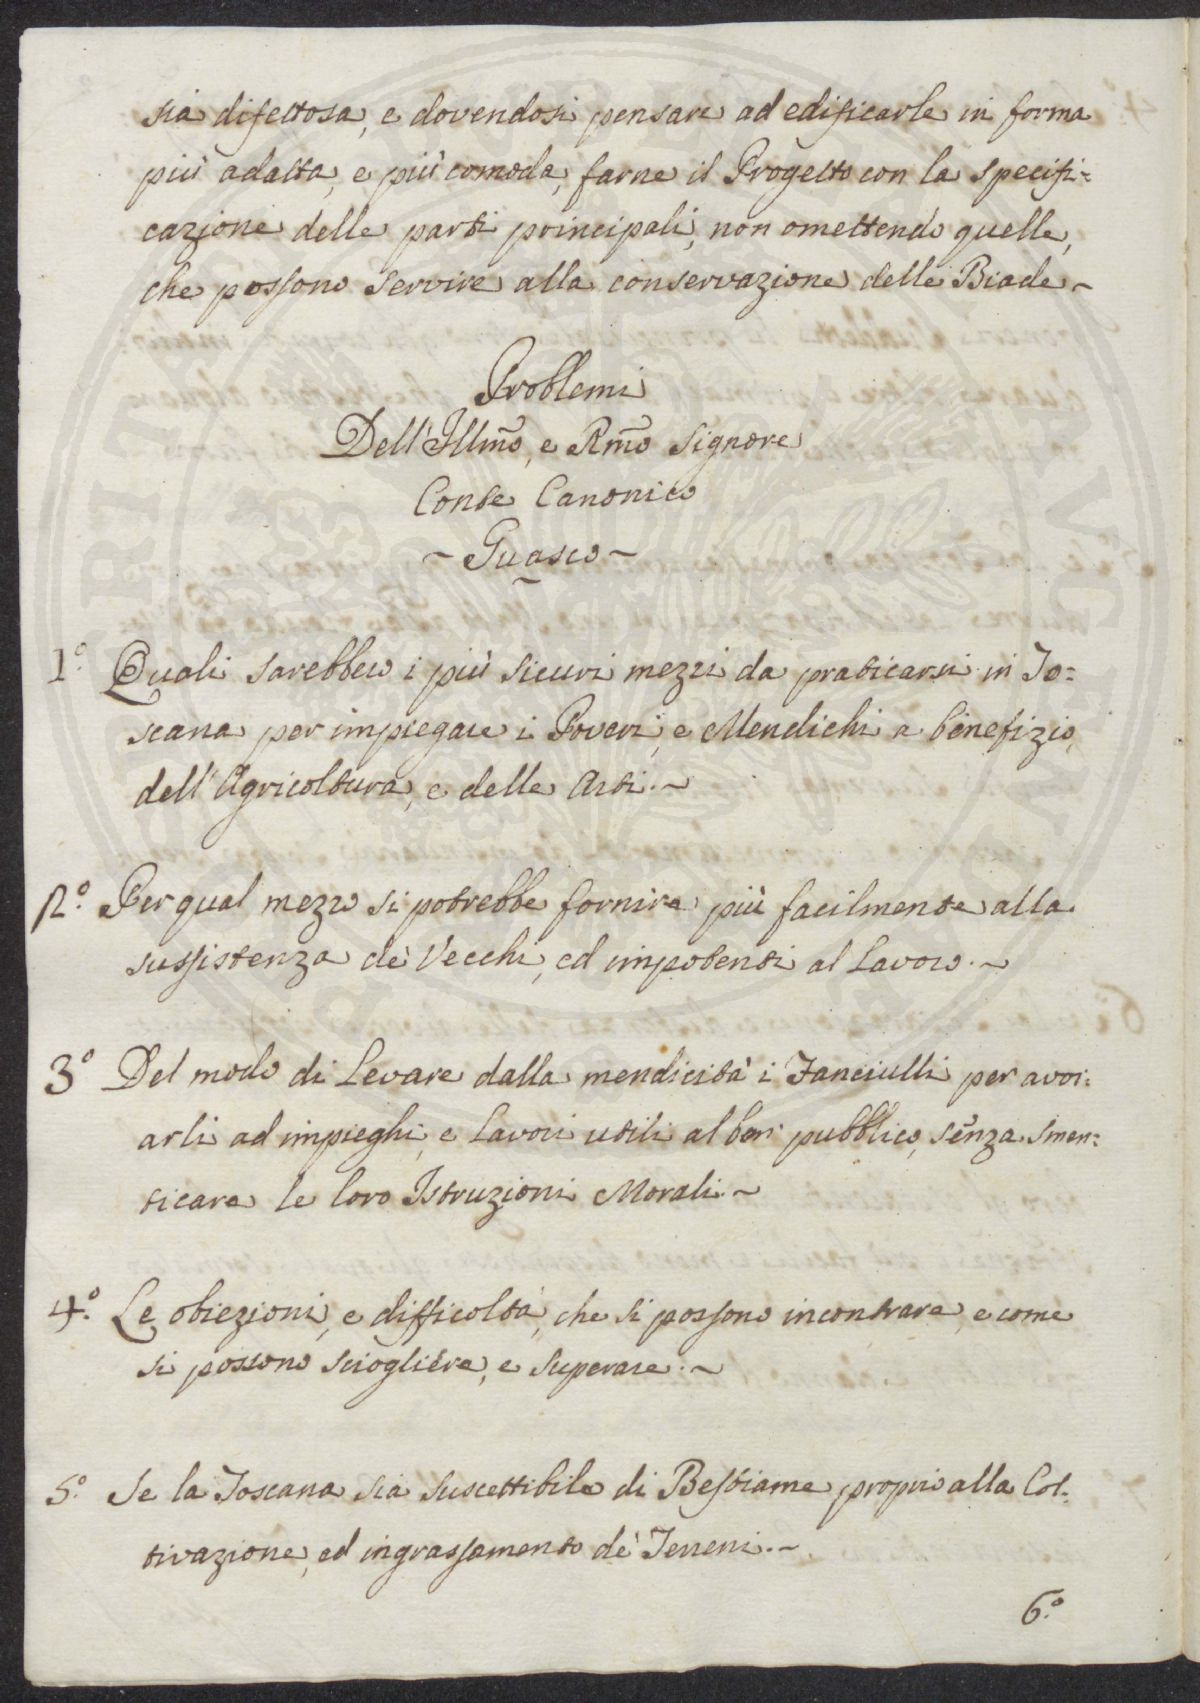 sia difettosa, e dovendosi pensare ad edificarle in forma
più adatta, e più comoda, farne il Progetto con la specifi=
cazione delle parti principali, non omettendo quelle,
che possono servire alla conservazione delle Biade ~
Problemi
Dell'Illmo, e Rmo Signore
Conte Canonico
~ Guasco ~
1.° Quali sarebbero i più sicuri mezzi da praticarsi in To=
scana per impiegare i Poveri, e Mendichi a benefizio,
dell'Agricoltura, e delle Arti. ~
2.° Per qual mezzo si potrebbe fornire più facilmente alla
sussistenza de' Vecchi, ed impotenti al Lavoro. ~
3° Del modo di Levare dalla mendicità i Fanciulli per avvi=
arli ad impieghi, e Lavori utili al ben pubblico, senza smen=
ticare le loro Istruzioni Morali. ~
4.° Le obiezioni, e difficoltà, che si possono incontrare, e come
si possono sciogliere, e superare. ~
5.° Se la Toscana sia suscettibile di Bestiame proprio alla Col=
tivazione, ed ingrassamento de' Terreni. ~
6.°